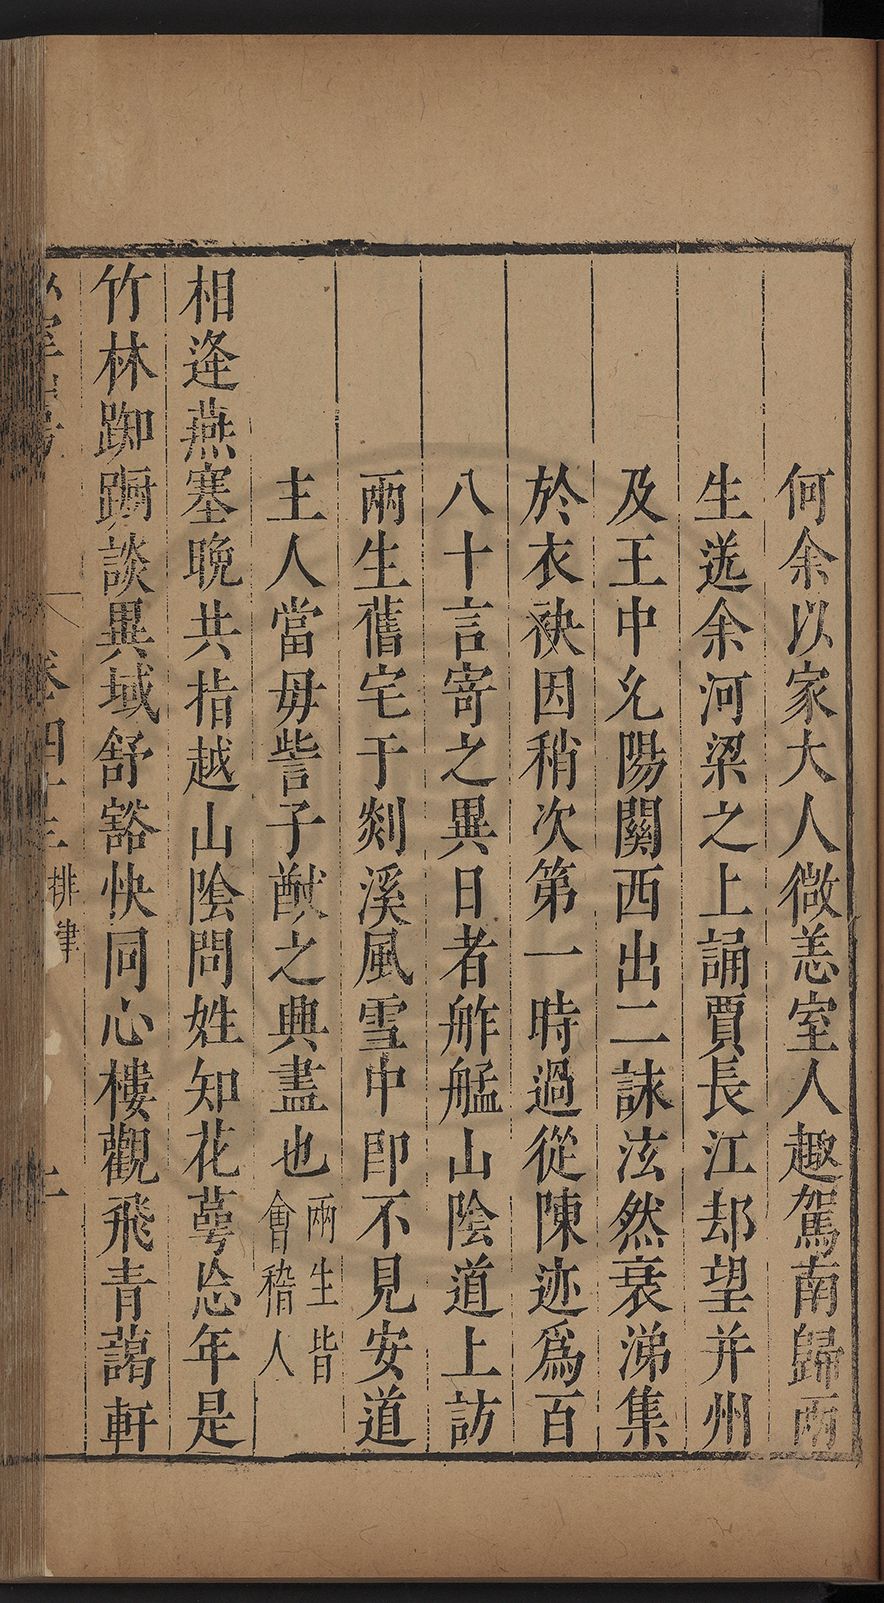 何余以家大人微恙室人趣駕南歸兩
生送余河梁之上誦賈長江却望并州
及王中允陽關西出二詠泫然衰涕集
於衣袂因稍次第一時過從陳迹爲百
八十言寄之異日者舴艋山陰道上訪
兩生舊宅于剡溪風雪中即不見安道
主人當毋訾子猷之興盡也兩生皆
會稽人
相逢燕塞晚共指越山陰問姓知花萼忘年是
竹林踟躕談異域舒豁快同心樓觀飛青藹軒
卷四十三 排律